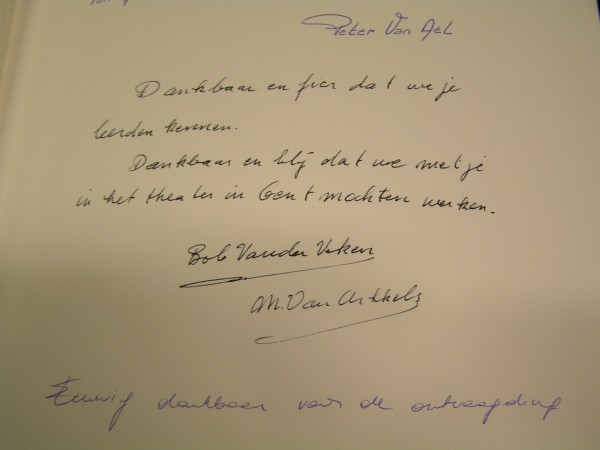 Peter Van Ael
Dankbaar en fier dat we je
leerden kennen.
Dankbaar en blij dat we met je
in het theater in Gent mochten werken.
Bob Vander Veken
M. Van Arkkels
Eeuwig dankbaar voor de ontvoogding